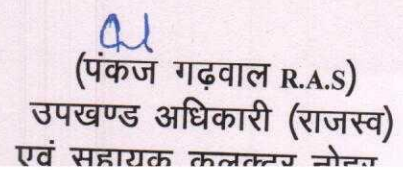 (पंकज गढ़वाल R.A.S)
उपखण्ड अधिकारी (राजस्व)
एवं सहायक कलक्टर नोहर